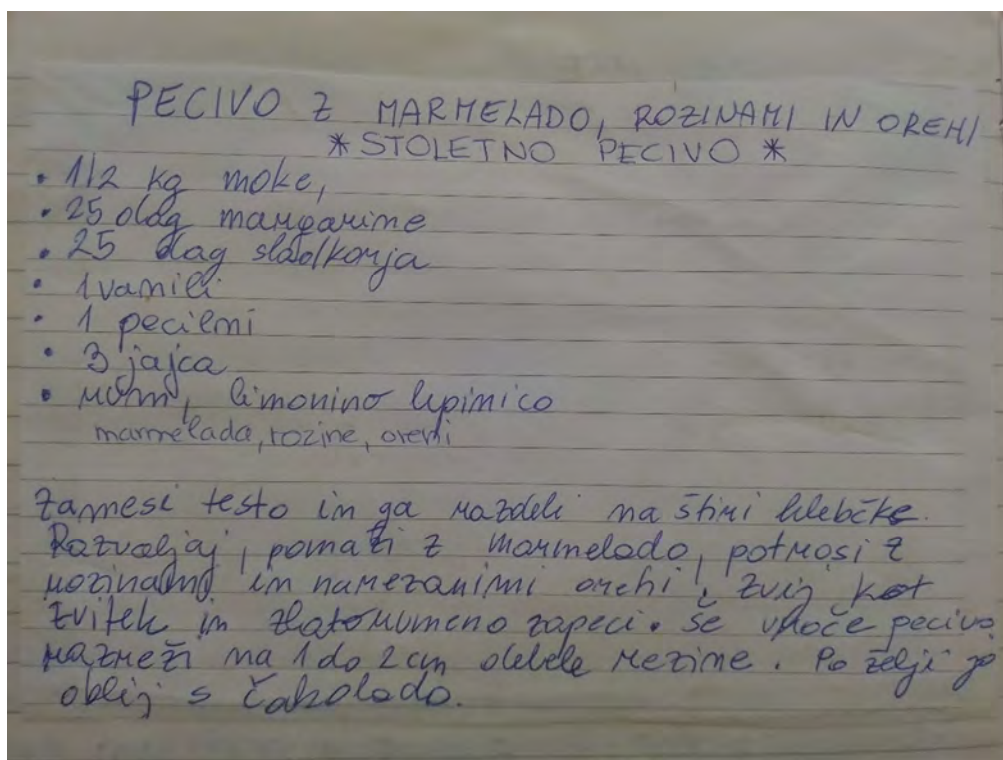 PECIVO Z MARMELADO, ROZINAMI IN OREHI
* STOLETNO PECIVO *
• 1/2 kg moke,
• 25 dag margarine
• 25 dag sladkorja
• 1 vanili
• 1 pecilni
• 3 jajca
• rum, limonino lupinico
marmelada, rozine, orehi
Zamesi testo in ga razdeli na štiri hlebčke.
Razvaljaj, pomaži z marmelado, potrosi z
rozinami in narezanimi orehi, zvij kot
zvitek in zlatorumeno zapeci. Še vroče pecivo
razreži na 1 do 2 cm debele rezine. Po želji jo
oblij s čokolado.